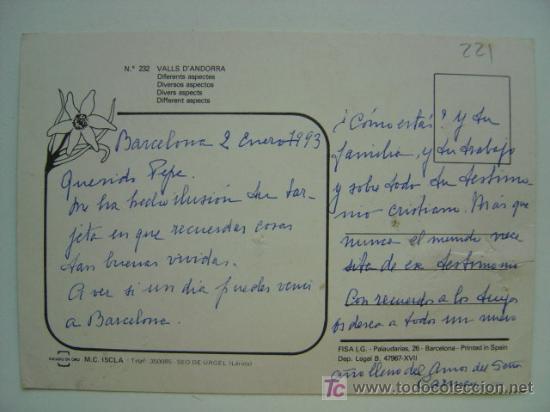 221
N.º 232 VALLS D'ANDORRA
Diferents aspectes
Diversos aspectos
Divers aspects
Different aspects
Barcelona 2 Enero 1993
Querido Pepe.
Me ha hecho ilusión tu tar-
jeta en que recuerdas cosas
tan buenas vividas.
A ver si un dia puedes venir
a Barcelona.
¿Cómo estás? y tu
familia, y tu trabajo
y sobre todo tu testimo
nio cristiano. Más que
nunca el mundo nece
sita de ese testimonio
Con recuerdos a los tuyos
os deseo a todos un nuevo
año lleno del Amor del Señor
Carmen
M.C. ISCLA - Telef. 350085 - SEO DE URGEL (Lérida)
FISA I.G. - Palaudarias, 26 - Barcelona - Printed in Spain
Dep. Legal B. 47967-XVII
todocoleccion